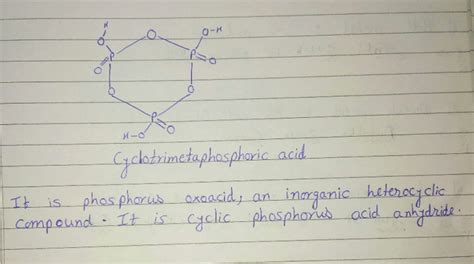 H
O O O-H
P P
O O
O O
P
H-O O
Cyclotrimetaphosphoric acid
It is phosphorus oxoacid, an inorganic heterocyclic
compound. It is cyclic phosphorus acid anhydride.